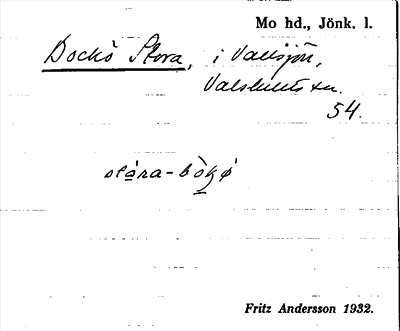 Mo hd., Jönk. l.
Bockö Stora, i Vallsjön,
Valshults sn.
54.
stóra-bòkǿ
Fritz Andersson 1932.